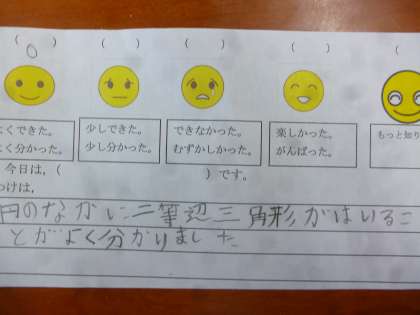 ( ) ( ) ( ) ( ) (
○
よくできた。 少しできた。 できなかった。 楽しかった。 もっと知り
よく分かった。 少し分かった。 むずかしかった。 がんばった。
今日は，( ) です。
つけは，
円のなかに二等辺三角形がはいるこ
とがよく分かりました